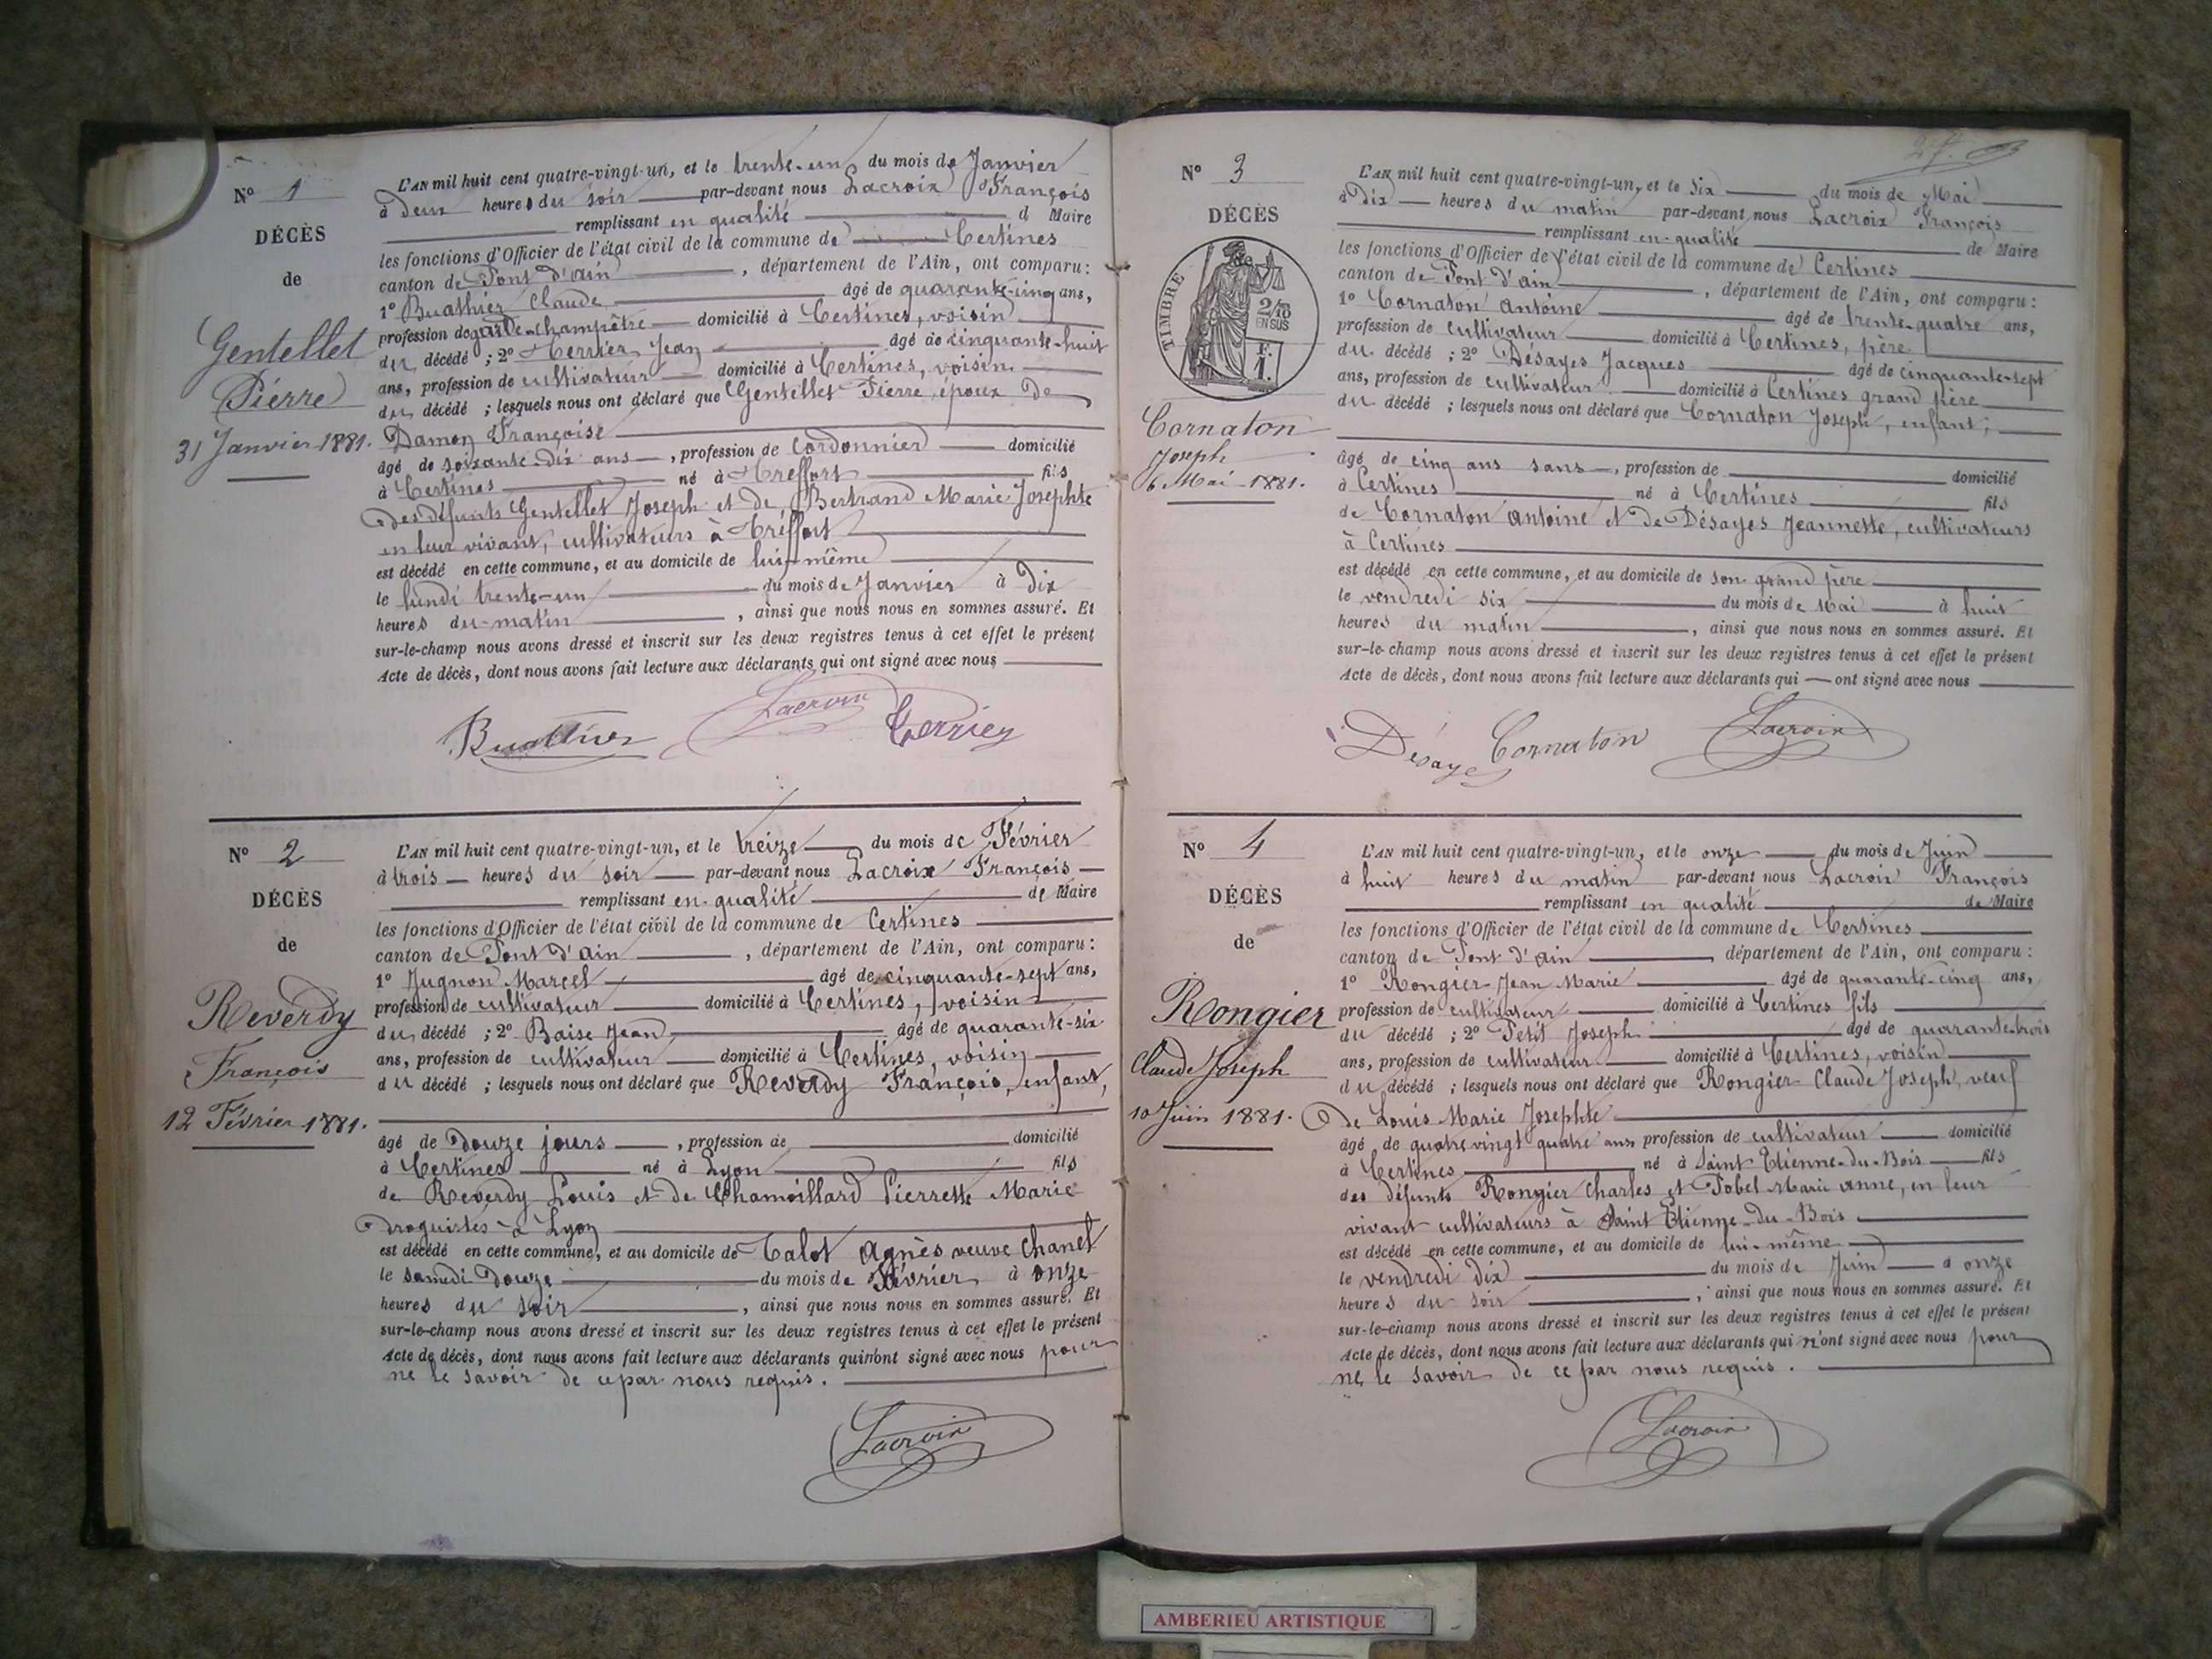 N° 1
DÉCÈS
de
Gentellet
Pierre
31 Janvier 1881.
L'AN mil huit cent quatre-vingt-un, et le trente-un du mois de Janvier
à deux heures du soir par-devant nous Lacroix François
remplissant en qualité d Maire
les fonctions d'Officier de l'état civil de la commune de Certines
canton de Pont d'ain, département de l'Ain, ont comparu:
1° Buathier Claude âgé de quarante-cinq ans,
profession de garde-champêtre domicilié à Certines, voisin
du décédé ; 2° Terrier Jean âgé de cinquante-huit
ans, profession de cultivateur domicilié à Certines, voisin
du décédé ; lesquels nous ont déclaré que Gentellet Pierre, époux de
Damon Françoise
âgé de soixante-dix ans, profession de cordonnier domicilié
à Certines né à Treffort fils
des défunts Gentellet Joseph et de Bertrand Marie Josephte
en leur vivant, cultivateurs à Tréffort
est décédé en cette commune, et au domicile de lui-même
le lundi trente-un du mois de Janvier à dix
heures du matin, ainsi que nous nous en sommes assuré. Et
sur-le-champ nous avons dressé et inscrit sur les deux registres tenus à cet effet le présent
Acte de décès, dont nous avons fait lecture aux déclarants qui ont signé avec nous
Buathier Lacroix Terrier
N° 2
DÉCÈS
de
Reverdy
François
12 Février 1881.
L'AN mil huit cent quatre-vingt-un, et le treize du mois de Février
à trois heures du soir par-devant nous Lacroix François
remplissant en qualité de Maire
les fonctions d'Officier de l'état civil de la commune de Certines
canton de Pont d'ain, département de l'Ain, ont comparu:
1° Jugnon Marcel âgé de cinquante-sept ans,
profession de cultivateur domicilié à Certines, voisin
du décédé ; 2° Baise Jean âgé de quarante-six
ans, profession de cultivateur domicilié à Certines, voisin
du décédé ; lesquels nous ont déclaré que Reverdy François, enfant,
âgé de douze jours, profession de domicilié
à Certines né à Lyon fils
de Reverdy Louis et de Chamoillard Pierrette Marie
droguistes à Lyon
est décédé en cette commune, et au domicile de Talot Agnès veuve Chanel
le samedi douze du mois de Février à onze
heures du soir, ainsi que nous nous en sommes assuré. Et
sur-le-champ nous avons dressé et inscrit sur les deux registres tenus à cet effet le présent
Acte de décès, dont nous avons fait lecture aux déclarants qui n'ont signé avec nous pour
ne le savoir de ce par nous requis.
Lacroix
27.
N° 3
DÉCÈS
TIMBRE
2/10
EN SUS
F.
1.
Cornaton
Joseph
6 Mai 1881.
L'AN mil huit cent quatre-vingt-un, et le six du mois de Mai
à Dix heures du matin par-devant nous Lacroix François
remplissant en qualité de Maire
les fonctions d'Officier de l'état civil de la commune de Certines
canton de Pont d'ain, département de l'Ain, ont comparu:
1° Cornaton Antoine âgé de trente-quatre ans,
profession de cultivateur domicilié à Certines, père
du décédé ; 2° Désayes Jacques âgé de cinquante-sept
ans, profession de cultivateur domicilié à Certines grand père
du décédé ; lesquels nous ont déclaré que Cornaton Joseph, enfant;
âgé de cinq ans sans, profession de domicilié
à Certines né à Certines fils
de Cornaton Antoine et de Désayes Jeannette, cultivateurs
à Certines
est décédé en cette commune, et au domicile de son grand père
le vendredi six du mois de Mai à huit
heures du matin, ainsi que nous nous en sommes assuré. Et
sur-le-champ nous avons dressé et inscrit sur les deux registres tenus à cet effet le présent
Acte de décès, dont nous avons fait lecture aux déclarants qui ont signé avec nous
Désayes Cornaton Lacroix
N° 4
DÉCÈS
de
Rongier
Claude Joseph
10 Juin 1881.
L'AN mil huit cent quatre-vingt-un, et le onze du mois de Juin
à huit heures du matin par-devant nous Lacroix François
remplissant en qualité de Maire
les fonctions d'Officier de l'état civil de la commune de Certines
canton de Pont d'ain département de l'Ain, ont comparu:
1° Rongier Jean Marie âgé de quarante-cinq ans,
profession de cultivateur domicilié à Certines fils
du décédé ; 2° Petit Joseph âgé de quarante-trois
ans, profession de cultivateur domicilié à Certines, voisin
du décédé ; lesquels nous ont déclaré que Rongier Claude Joseph, veuf
de Louis Marie Josephte
âgé de quatre vingt quatre ans profession de cultivateur domicilié
à Certines né à Saint Etienne-du-Bois fils
des défunts Rongier Charles et Pobel Marie Anne, en leur
vivant cultivateurs à Saint Etienne-du-Bois
est décédé en cette commune, et au domicile de lui-même
le vendredi dix du mois de Juin à onze
heures du soir, ainsi que nous nous en sommes assuré. Et
sur-le-champ nous avons dressé et inscrit sur les deux registres tenus à cet effet le présent
Acte de décès, dont nous avons fait lecture aux déclarants qui n'ont signé avec nous pour
ne le savoir de ce par nous requis.
Lacroix
AMBERIEU ARTISTIQUE